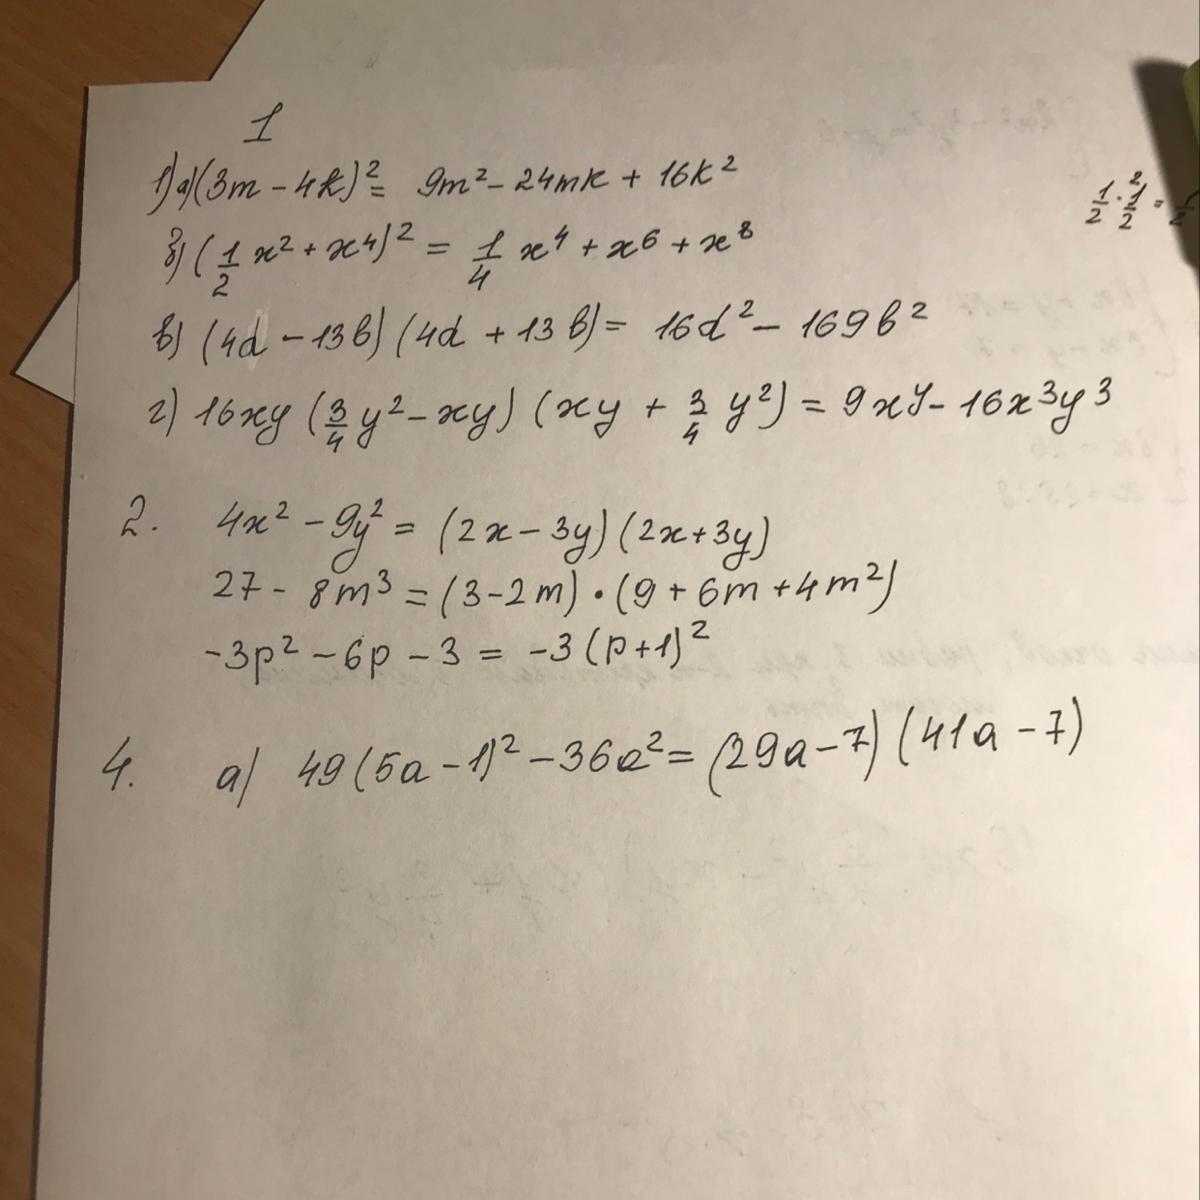 1
1) а) (3m - 4k)² = 9m² - 24mk + 16k²
б) (1/2 x² + x⁴)² = 1/4 x⁴ + x⁶ + x⁸
в) (4d - 13b) (4d + 13b) = 16d² - 169b²
г) 16xy (3/4 y² - xy) (xy + 3/4 y²) = 9xy - 16x³y³
2. 4x² - 9y² = (2x - 3y) (2x + 3y)
27 - 8m³ = (3 - 2m) · (9 + 6m + 4m²)
-3p² - 6p - 3 = -3 (p + 1)²
4. а) 49 (5a - 1)² - 36a² = (29a - 7) (41a - 7)